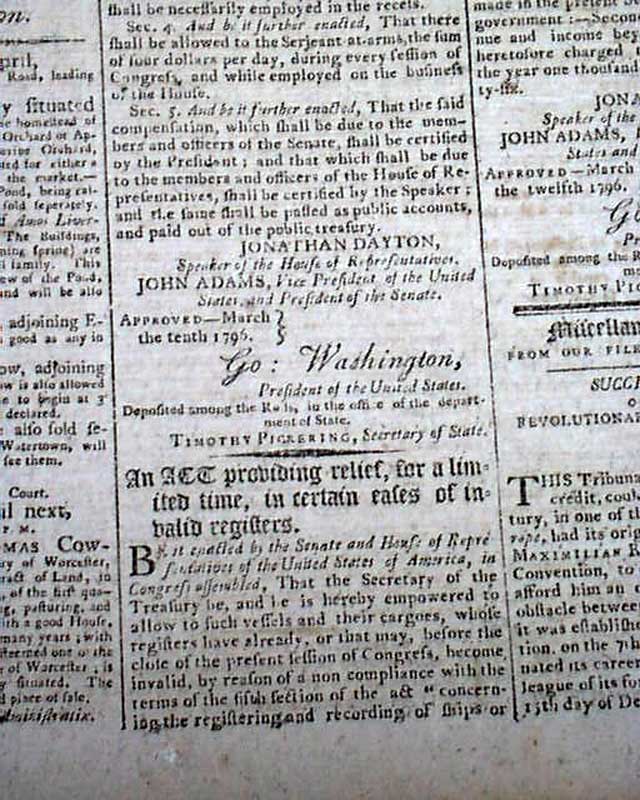 on.
pril,
Road, leading
y situated
e homestead of
Orchard or Ap-
Orchard,
ted for either a
the market.—
Pond, being cal-
sold seperately.
d Amos Liver-
The Buildings,
ning spring) are
l family. This
ew of the Pond,
and will be also
adjoining E-
good as any in
ow, adjoining
ow is also allowed
e to begin at 3
declared.
e also sold se-
Watertown, will
see them.
Court.
il next,
P. M.
OMAS COW-
y of Worcester,
ract of Land, in
of the first qua-
g, pasturing, and
ith a good House,
many years; with
steemed one of the
of Worcester, is
y situated. The
d place of sale.
dministratix.
shall be necessarily employed in the recess.
Sec. 4. And be it further enacted, That there
shall be allowed to the Serjeant-at-arms, the sum
of four dollars per day, during every session of
Congress, and while employed on the business
of the House.
Sec. 5. And be it further enacted, That the said
compensation, which shall be due to the mem-
bers and officers of the Senate, shall be certified
by the President; and that which shall be due
to the members and officers of the House of Re-
presentatives, shall be certified by the Speaker;
and the same shall be passed as public accounts,
and paid out of the public treasury.
JONATHAN DAYTON,
Speaker of the House of Representatives.
JOHN ADAMS, Vice President of the United
States, and President of the Senate.
APPROVED—March }
the tenth 1796. }
Go: Washington,
President of the United States.
Deposited among the Rolls, in the office of the depart-
ment of State.
TIMOTHY PICKERING, Secretary of State.
An ACT providing relief, for a lim-
ited time, in certain cases of in-
valid registers.
BE it enacted by the Senate and House of Repre
sentatives of the United States of America, in
Congress assembled, That the Secretary of the
Treasury be, and he is hereby empowered to
allow to such vessels and their cargoes, whose
registers have already, or that may, before the
close of the present session of Congress, become
invalid, by reason of a non compliance with the
terms of the fifth section of the act "concern-
ing the registering and recording of ships or
made in the present
government:—Secon
nue and income bey
heretofore charged
the year one thousand
ty-six.
JONA
Speaker of the
JOHN ADAMS,
States and
APPROVED—March
the twelfth 1796.
G
Pr
Deposited among the R
m
TIMOTHY PICK
Miscellan
FROM OUR FILE
SUCC
O
REVOLUTIONA
THIS Tribuna
credit, coul
tury, in one of th
rope, had its orig
MAXIMILIAN R
Convention, to
afford him an
obstacle between
it was establishe
tion, on the 7th
nated its career
league of its fo
15th day of De